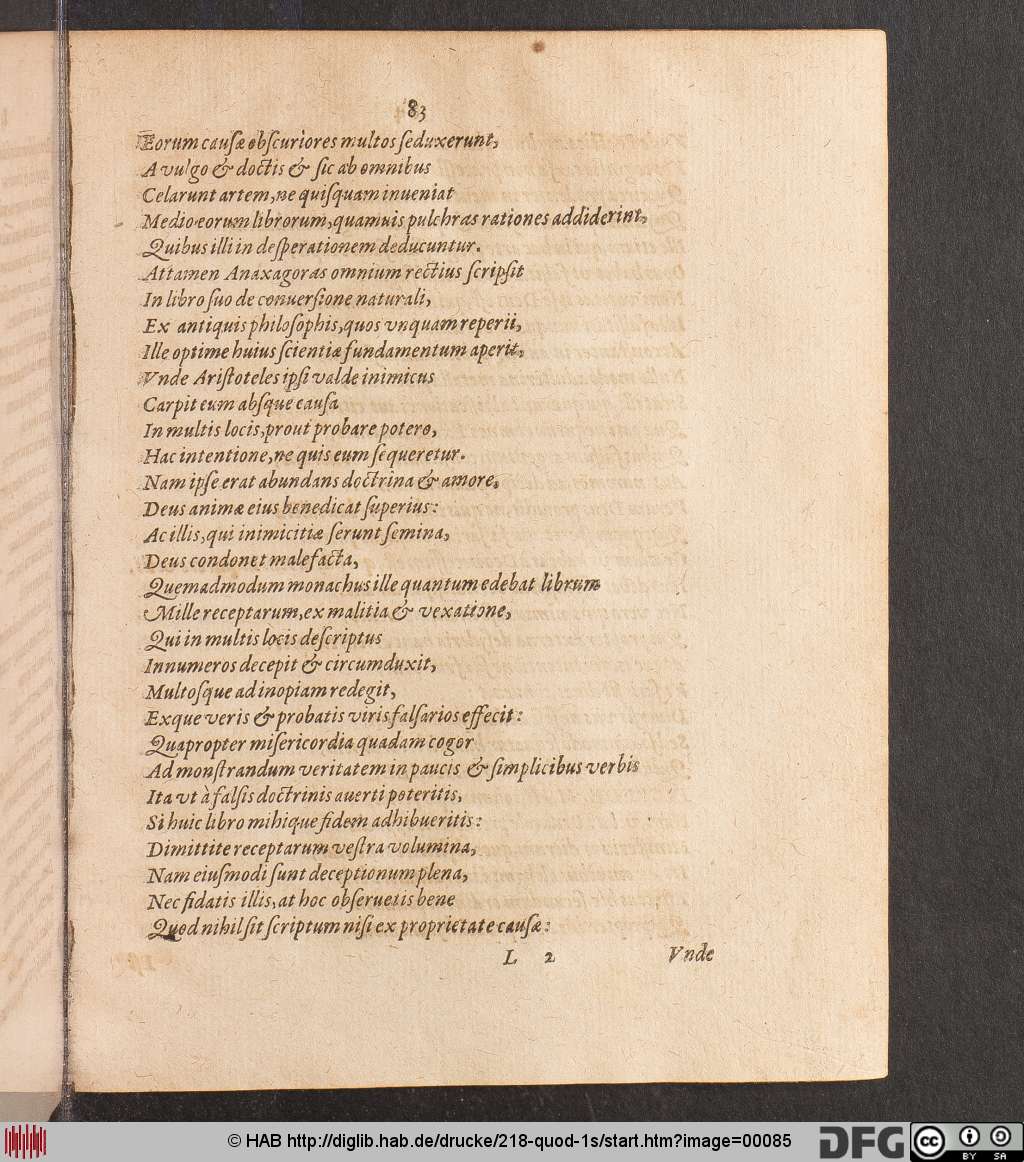 83
Eorum cauſæ obſcuriores multos ſeduxerunt,
A vulgo & doctis & ſic ab omnibus
Celarunt artem, ne quiſquam inueniat
Medio eorum librorum, quamuis pulchras rationes addiderint,
Quibus illi in deſperationem deducuntur.
Attamen Anaxagoras omnium rectius ſcripſit
In libro ſuo de conuerſione naturali,
Ex antiquis philoſophis, quos vnquam reperii,
Ille optime huius ſcientiæ fundamentum aperit,
Vnde Ariſtoteles ipſi valde inimicus
Carpit eum abſque cauſa
In multis locis, prout probare potero,
Hac intentione, ne quis eum ſequeretur.
Nam ipſe erat abundans doctrina & amore,
Deus animæ eius benedicat ſuperius:
Ac illis, qui inimicitiæ ſerunt ſemina,
Deus condonet malefacta,
Quemadmodum monachus ille quantum edebat librum
Mille receptarum, ex malitia & vexatione,
Qui in multis locis deſcriptus
Innumeros decepit & circumduxit,
Multoſque ad inopiam redegit,
Exque veris & probatis viris falſarios effecit:
Quapropter miſericordia quadam cogor
Ad monſtrandum veritatem in paucis & ſimplicibus verbis
Ita vt à falſis doctrinis auerti poteritis,
Si huic libro mihique fidem adhibueritis:
Dimittite receptarum veſtra volumina,
Nam eiuſmodi ſunt deceptionum plena,
Nec fidatis illis, at hoc obſeruetis bene
Quod nihil ſit ſcriptum niſi ex proprietate cauſæ:
L 2 Vnde
© HAB http://diglib.hab.de/drucke/218-quod-1s/start.htm?image=00085
DFG
cc BY SA